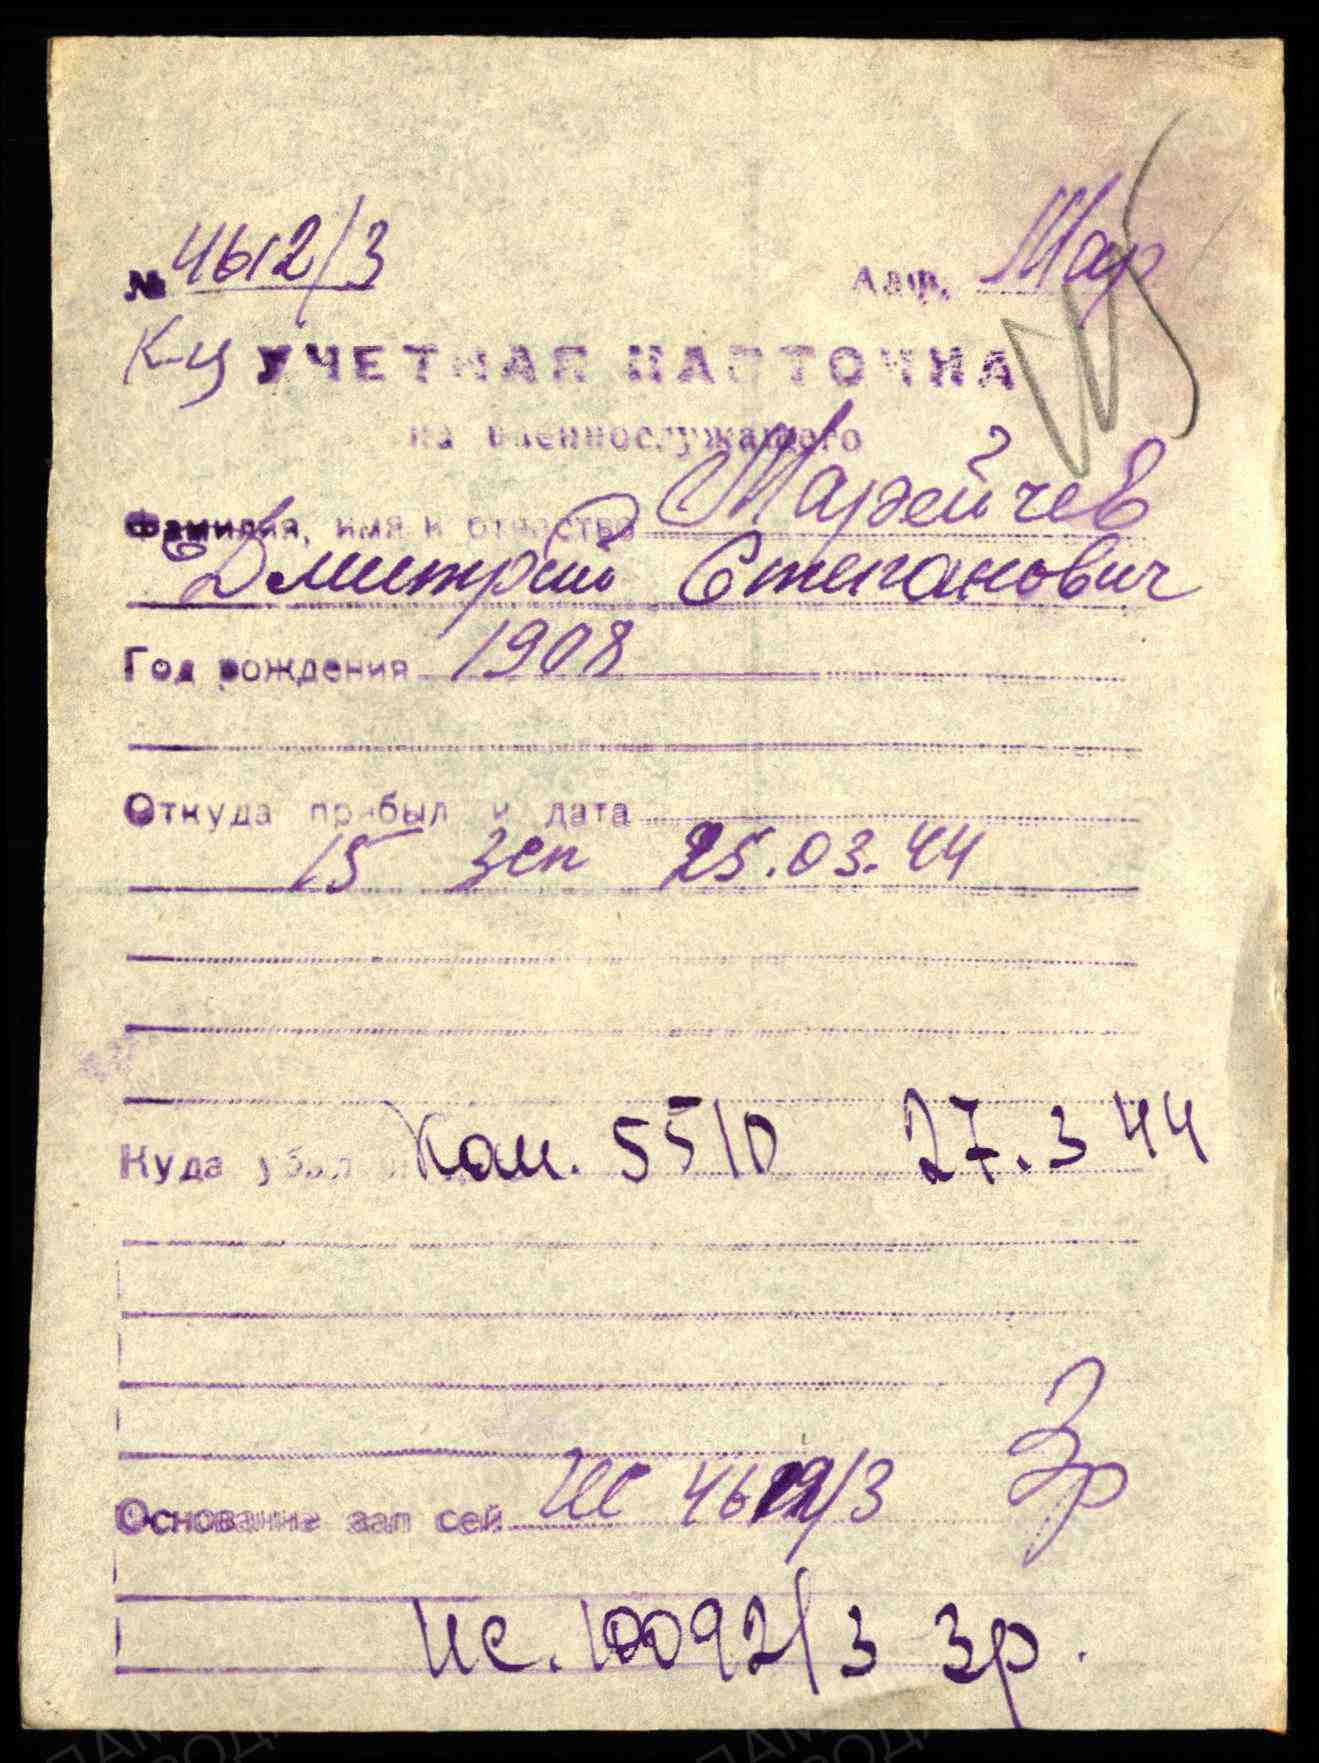 № 4612/3 Алф. Мар
К-ц УЧЕТНАЯ КАРТОЧКА
на военнослужащего
Фамилия, имя и отчество
Дмитрий Степанович
Год рождения 1908
Откуда прибыл и дата
15 зсп 25.03.44
Куда убыл и Ком. 5510 27.3 44
Основание зап сей ис 4612/3 Зр
ис. 10092/3 Зр.